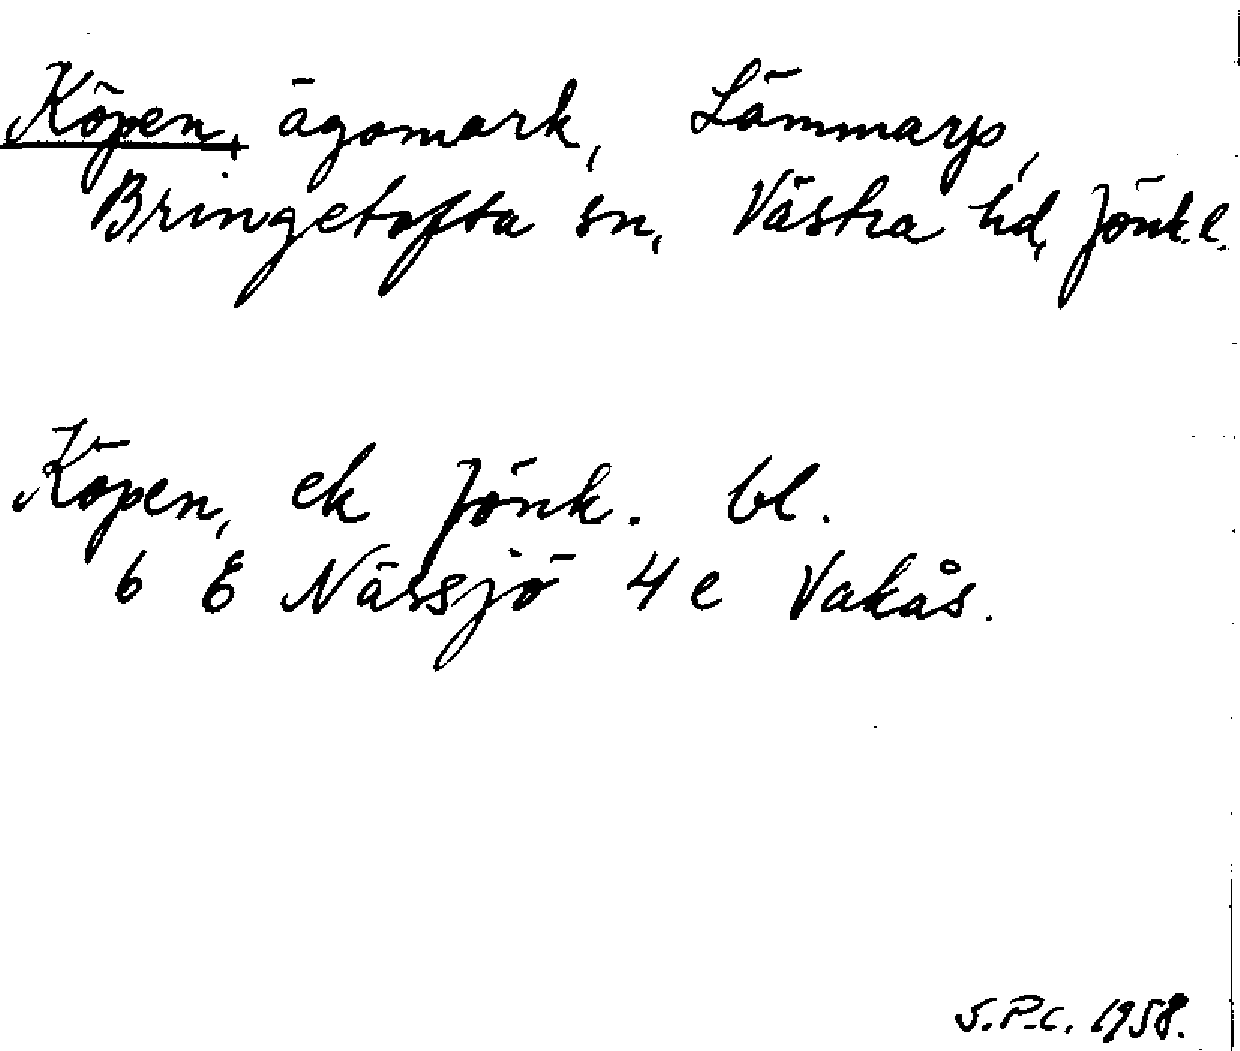 Köpen, ägomark, Lämmarp,
Bringetofta sn, Västra hd, Jönk.l.
Köpen, ek Jönk. bl.
6 E Nässjö 4 e Vakås.
S.P.C. 1958.